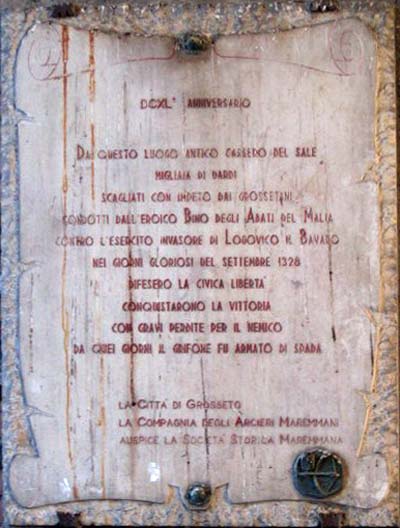 DCXL° ANNIVERSARIO
DA QUESTO LUOGO ANTICO CASSERO DEL SALE
MIGLIAIA DI DARDI
SCAGLIATI CON IMPETO DAI GROSSETANI
CONDOTTI DALL'EROICO BINO DEGLI ABATI DEL MALIA
CONTRO L'ESERCITO INVASORE DI LODOVICO IL BAVARO
NEI GIORNI GLORIOSI DEL SETTEMBRE 1328
DIFESERO LA CIVICA LIBERTA'
CONQUISTARONO LA VITTORIA
CON GRAVI PERDITE PER IL NEMICO
DA QUEI GIORNI IL GRIFONE FU ARMATO DI SPADA
LA CITTÀ DI GROSSETO
LA COMPAGNIA DEGLI ARCIERI MAREMMANI
AUSPICE LA SOCIETÀ STORICA MAREMMANA